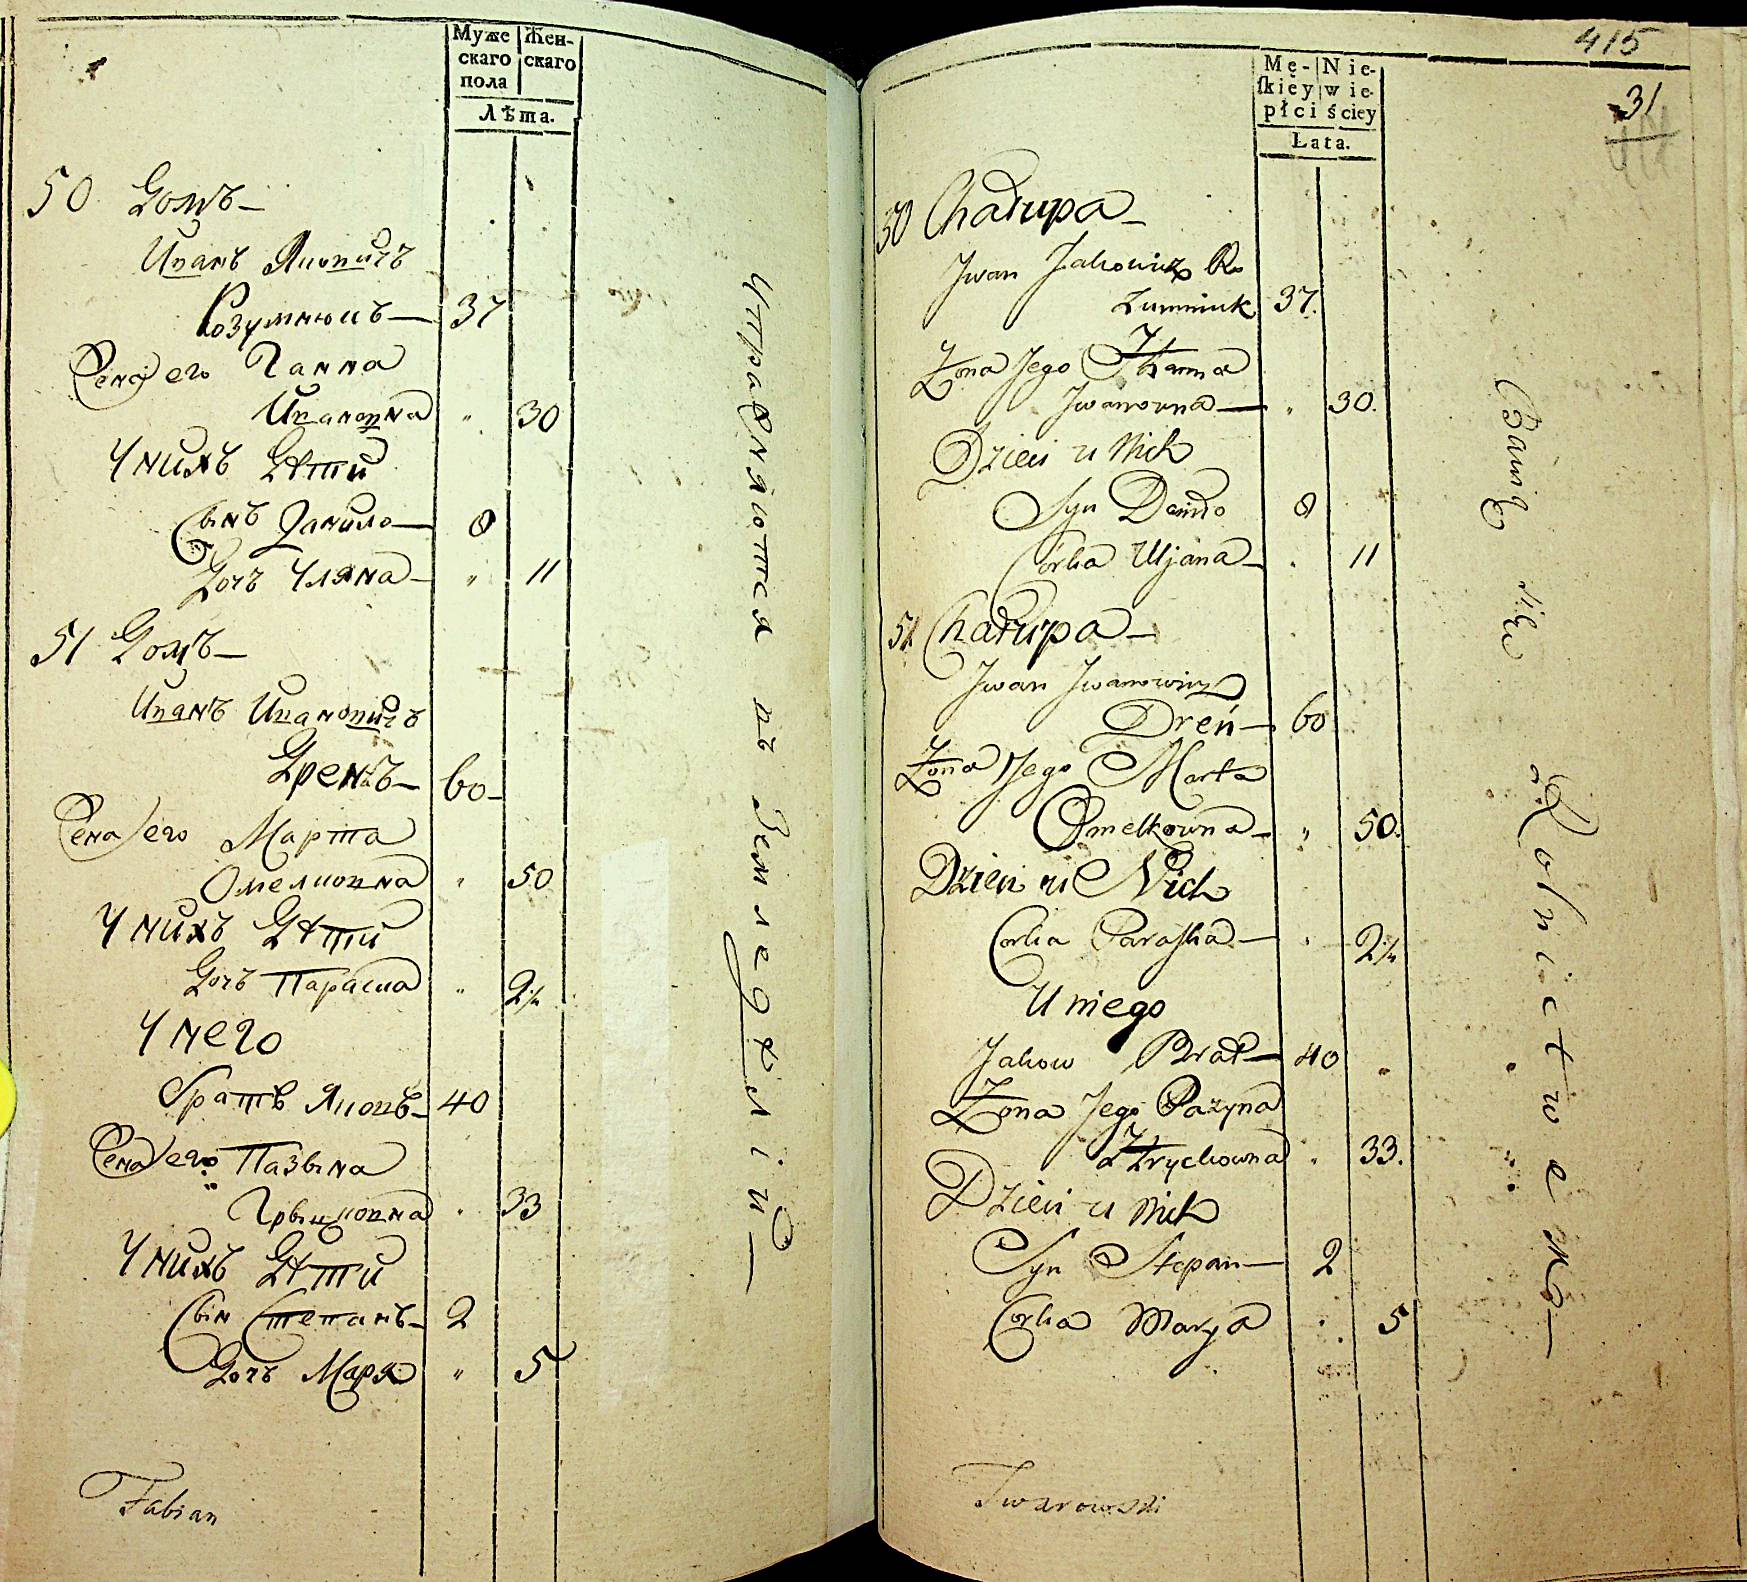 Муже Жен-
скаго скаго
пола
Лѣта.
50 Домъ—
Иванъ Яковичъ
Розумнюкъ— 37
Жена его Ганна
Ивановна „ 30
У нихъ Дѣти
Сынъ Данило— 8
Дочъ Уляна— „ 11
51 Домъ—
Иванъ Ивановичъ
Дренъ— 60—
Жена его Марта
Омелковна „ 50
У нихъ Дѣти
Дочъ Параска „
У него
братъ Яковъ— 40
Жена его Пазына
Грыцковна „ 33
У нихъ Дѣти
Сын Степанъ— 2
Дочъ Маря „ 5
Fabian
Упражняются въ Земледѣліи—
415
31
Mę- Nie-
ſkiéy wie-
płci ściey
Łata.
50 Chałupa—
Jwan Jakowicz Ro
zumniuk 37.
Żona Jego Hanna
Jwanowna— „ 30.
Dzieci u Nich
Syn Daniło 8
Córka Uljana— „ 11
51 Chałupa—
Jwan Jwanowicz
Dreń— 60
Żona Jego Marta
Omelkowna— „ 50.
Dzieci u Nich
Corka Paraſka— „
U niego
Jakow Brat— 40 „
Żona Jego Pazyna
Hrychowna „ 33.
Dzieci u Nich
Syn Stepan— 2
Corka Marya „ 5
Twarowski
Bawią się Rolnictwem—